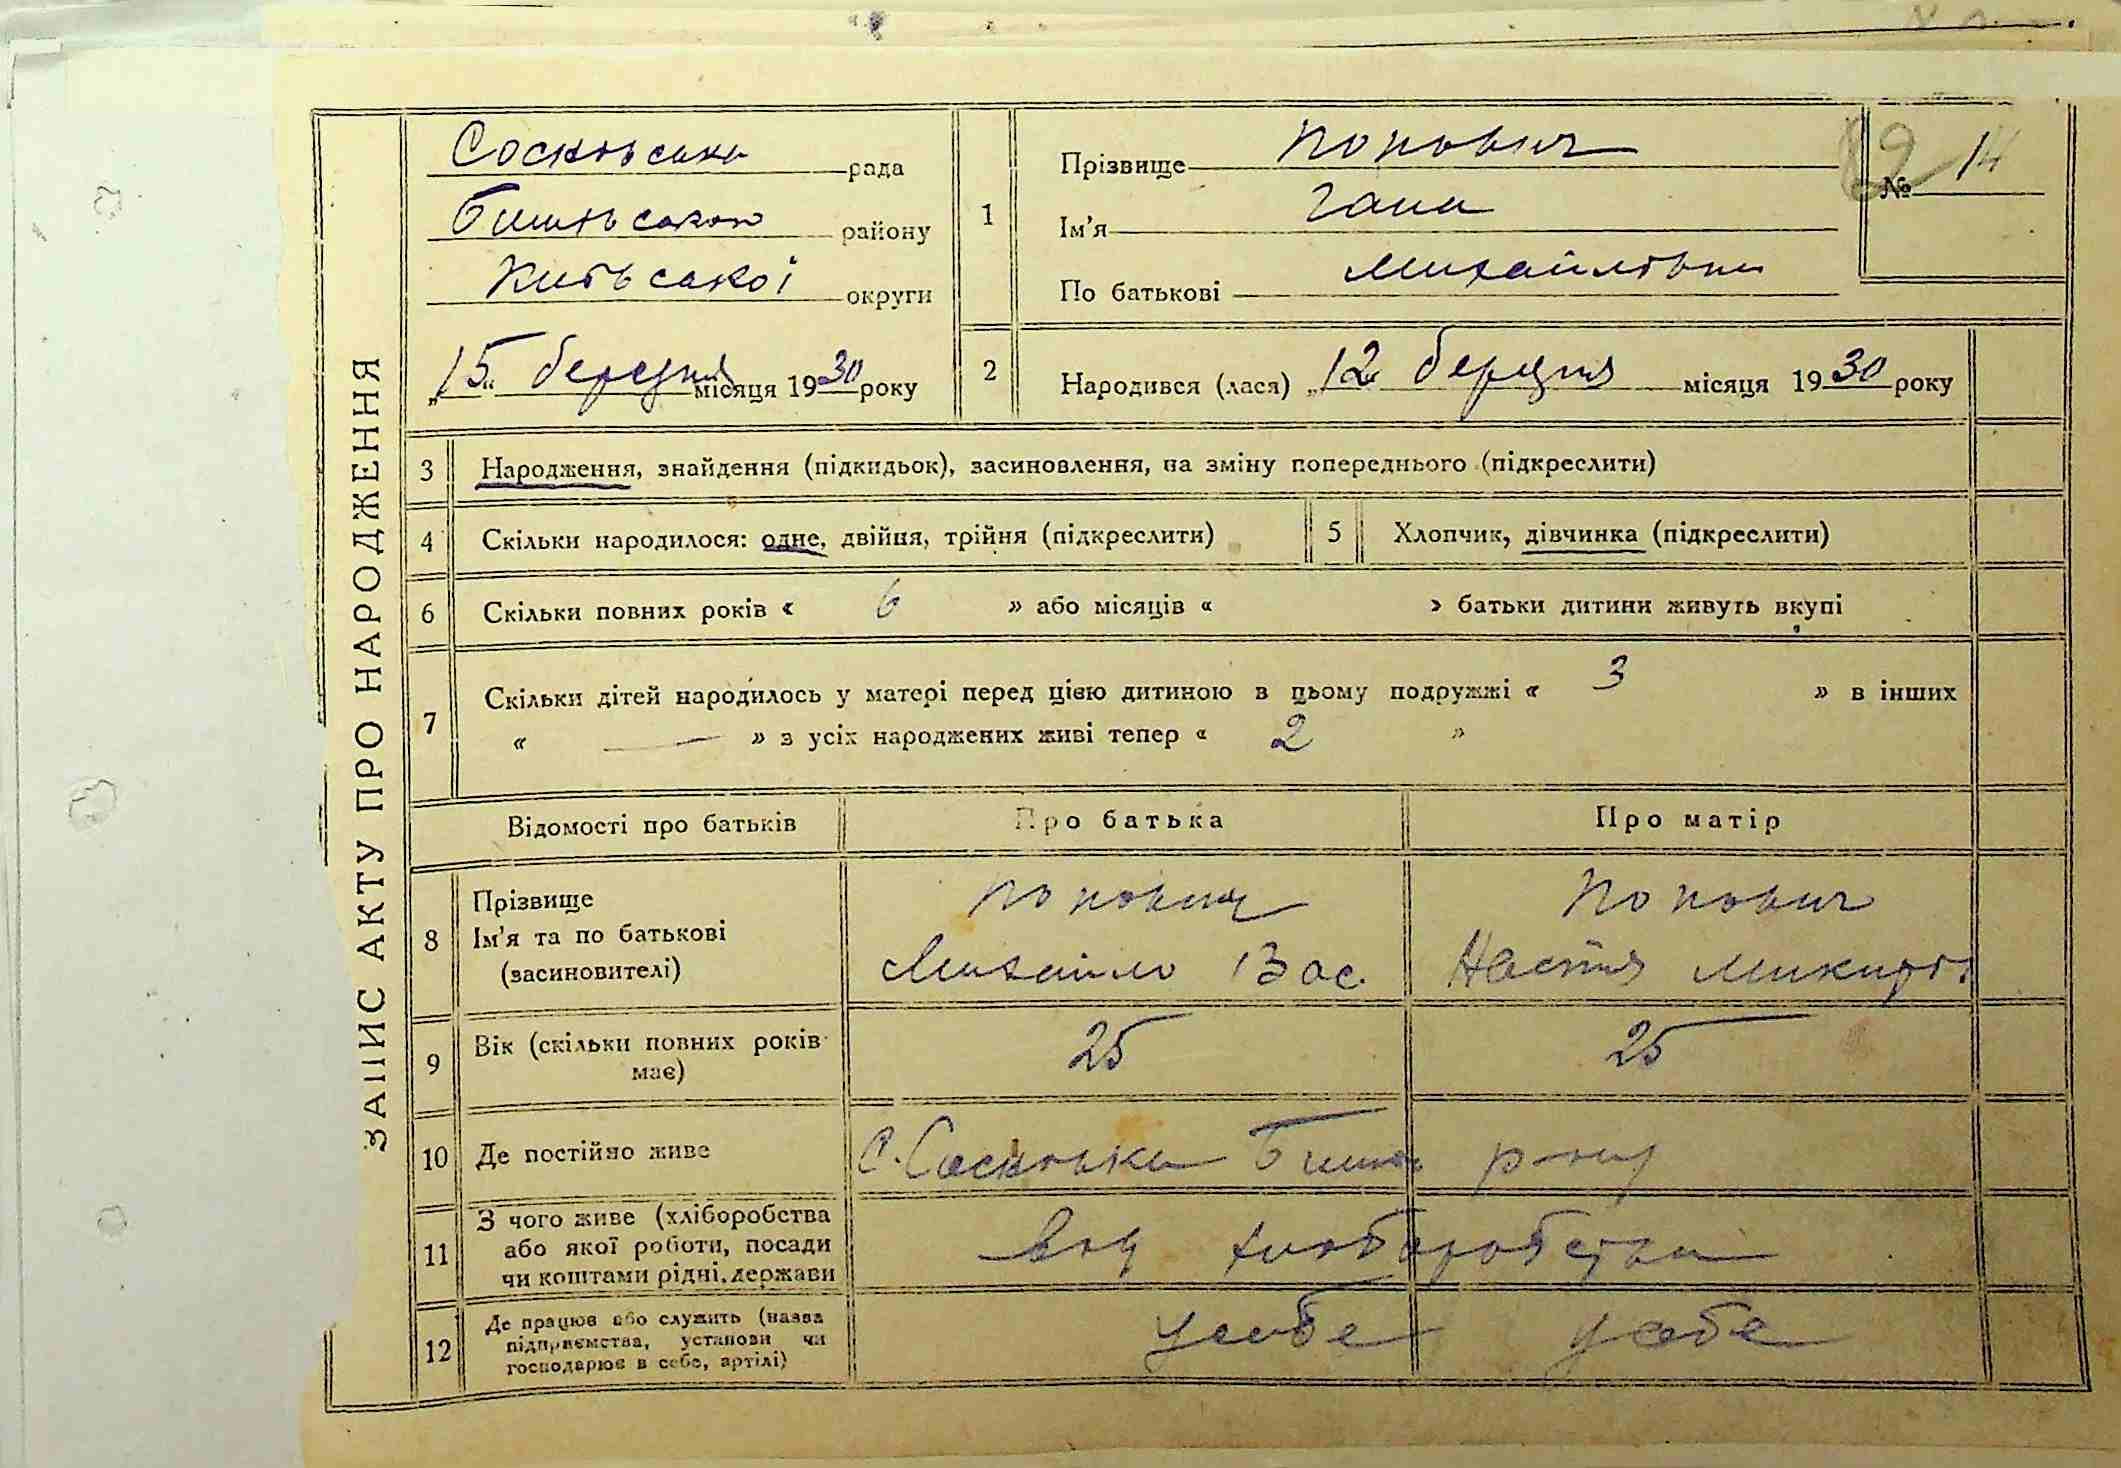 ЗАПИС АКТУ ПРО НАРОДЖЕННЯ
Соснівська рада
Бишівського району
Київської округи
„15“ березня місяця 1930 року
1
Прізвище Попович
Ім'я Гана
По батькові Михайлівна
№ 14
2
Народився (лася) „12 березня місяця 1930 року
3 Народження, знайдення (підкидьок), засиновлення, на зміну попереднього (підкреслити)
4 Скільки народилося: одне, двійня, трійня (підкреслити)
5 Хлопчик, дівчинка (підкреслити)
6 Скільки повних років « 6 » або місяців « » батьки дитини живуть вкупі
7 Скільки дітей народилось у матері перед цією дитиною в цьому подружжі « 3 » в інших
« — » з усіх народжених живі тепер « 2 »
Відомості про батьків Про батька Про матір
8 Прізвище Попович Попович
Ім'я та по батькові Михайло Вас. Настя Микит.
(засиновителі)
9 Вік (скільки повних років 25 25
має)
10 Де постійно живе с. Соснівка Бишів р-ну
11 З чого живе (хліборобства
або якої роботи, посади від хліборобства
чи коштами рідні, держави
12 Де працює або служить (назва
підприємства, установи чи усебе усебе
господарює в себе, артілі)